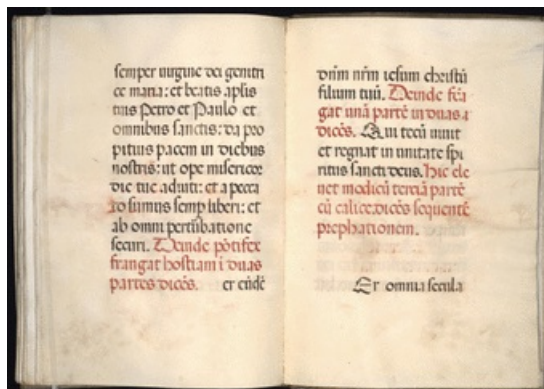 semper uirgine dei genitri
ce maria: et beatis aplis
tuis Petro et Paulo et
omnibus sanctis: da pro
pitius pacem in diebus
nostris: ut ope misericor
die tue adiuti: et a pecca
to simus semp liberi: et
ab omni pertūbatione
securi. Deinde pōtifex
frangat hostiam ī duas
partes dicēs. er eūdē
dn̄m nr̄m iesum christū
filium tuū. Deinde frā
gat unā partē in duas
dicēs. Qui tecū uiuit
et regnat in unitate spi
ritus sancti deus. Hic ele
uet modicū terciā partē
cū calice. dicēs sequentē
prephationem.
Per omnia secula